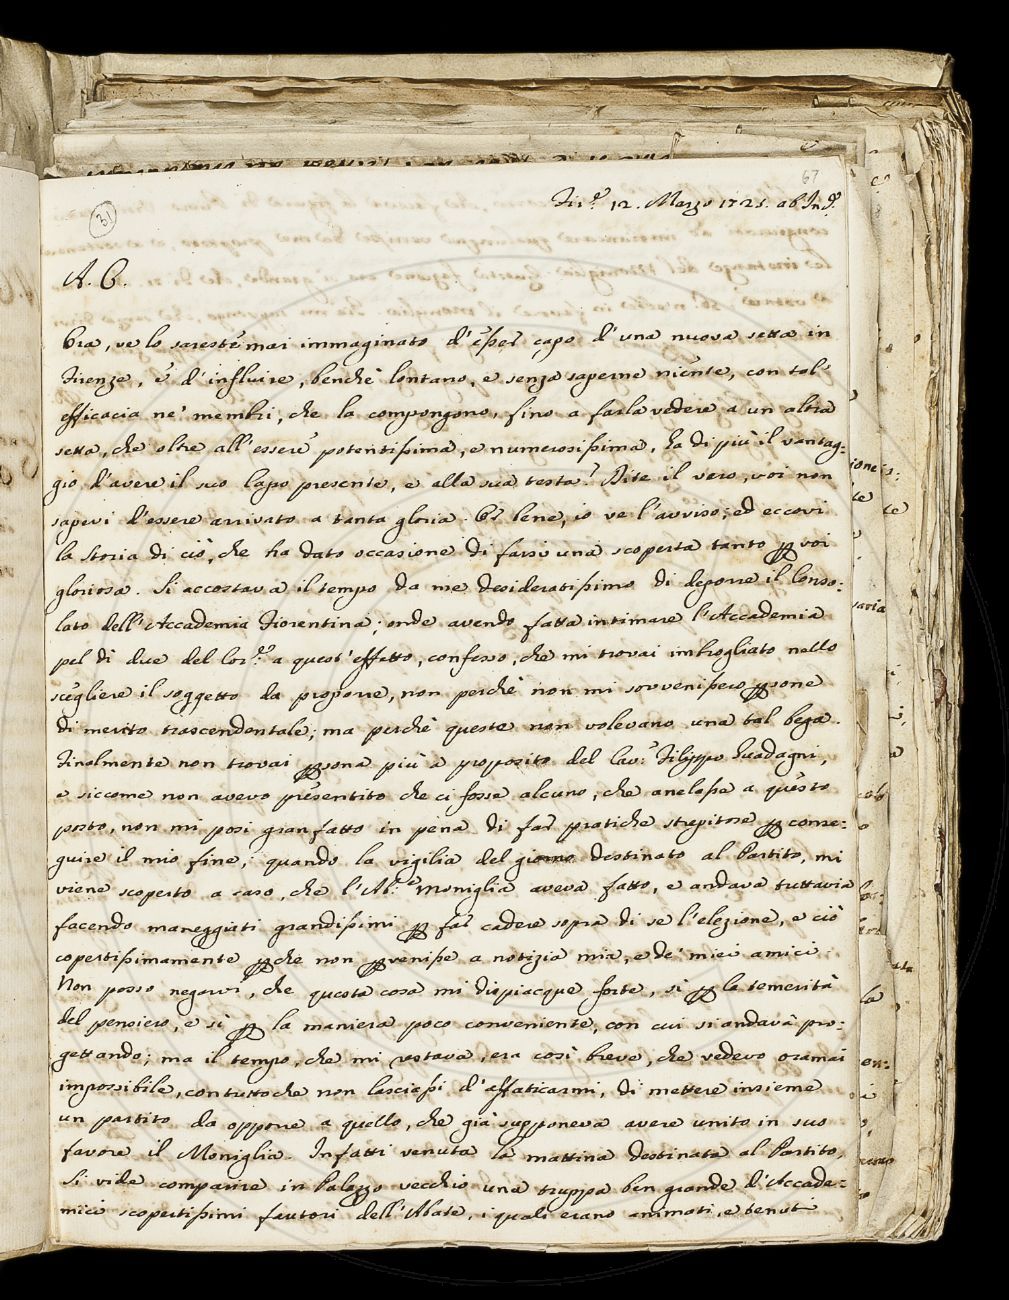 67
31
Fir.e 12. Marzo 1725. ab In.e
A. C.
Ora, ve lo sareste mai immaginato d'esser capo d'una nuova setta in
Firenze, e d'influire, benchè lontano, e senza saperne niente, con tal'
efficacia ne' membri, che la compongono, fino a farla vedere a un altra
setta, che oltre all'essere potentissima, e numerosissima, ha di più il vantag:
gio d'avere il suo Capo presente, e alla sua testa? Dite il vero, voi non
sapevi d'essere arrivato a tanta gloria. Or bene, io ve l'avviso; ed eccovi
la storia di ciò, che ha dato occasione di farsi una scoperta tanto p voi
gloriosa. Si accostava il tempo da me desideratissimo di deporre il Conso:
lato dell'Accademia Fiorentina; onde avendo fatta intimare l'Accademia
pel di due del cor.e a quest'effetto, confesso, che mi trovai imbrogliato nello
scegliere il soggetto da proporre, non perchè non mi sovvenissero psone
di merito trascendentale; ma perchè queste non volevano una tal bega.
Finalmente non trovai psona più a proposito del Cav.r Filippo Guadagni,
e siccome non avevo presentito che ci fosse alcuno, che anelasse a questo
posto, non mi posi gran fatto in pena di far pratiche strepitose p conse:
guire il mio fine; quando la vigilia del giorno destinato al Partito, mi
viene scoperto a caso, che l'Ab.e Moniglia aveva fatto, e andava tuttavia
facendo maneggiati grandissimi p far cadere sopra di se l'elezione, e ciò
copertissimamente pche non pvenisse a notizia mia, e de' miei amici.
Non posso negarvi, che questa cosa mi dispiacque forte, sì p la temerità
del pensiero, e sì p la maniera poco conveniente, con cui si andava pro:
gettando; ma il tempo, che mi restava, era così breve, che vedevo oramai
impossibile, contuttoche non lasciassi d'affaticarmi, di mettere insieme
un partito da opporre a quello, che già supponeva avere unito in suo
favore il Moniglia. Infatti venuta la mattina destinata al Partito,
si vide comparire in Palazzo vecchio una truppa ben grande d'Accade:
mici scopertissimi fautori dell'Abate, i quali erano ammoti, e tenuti